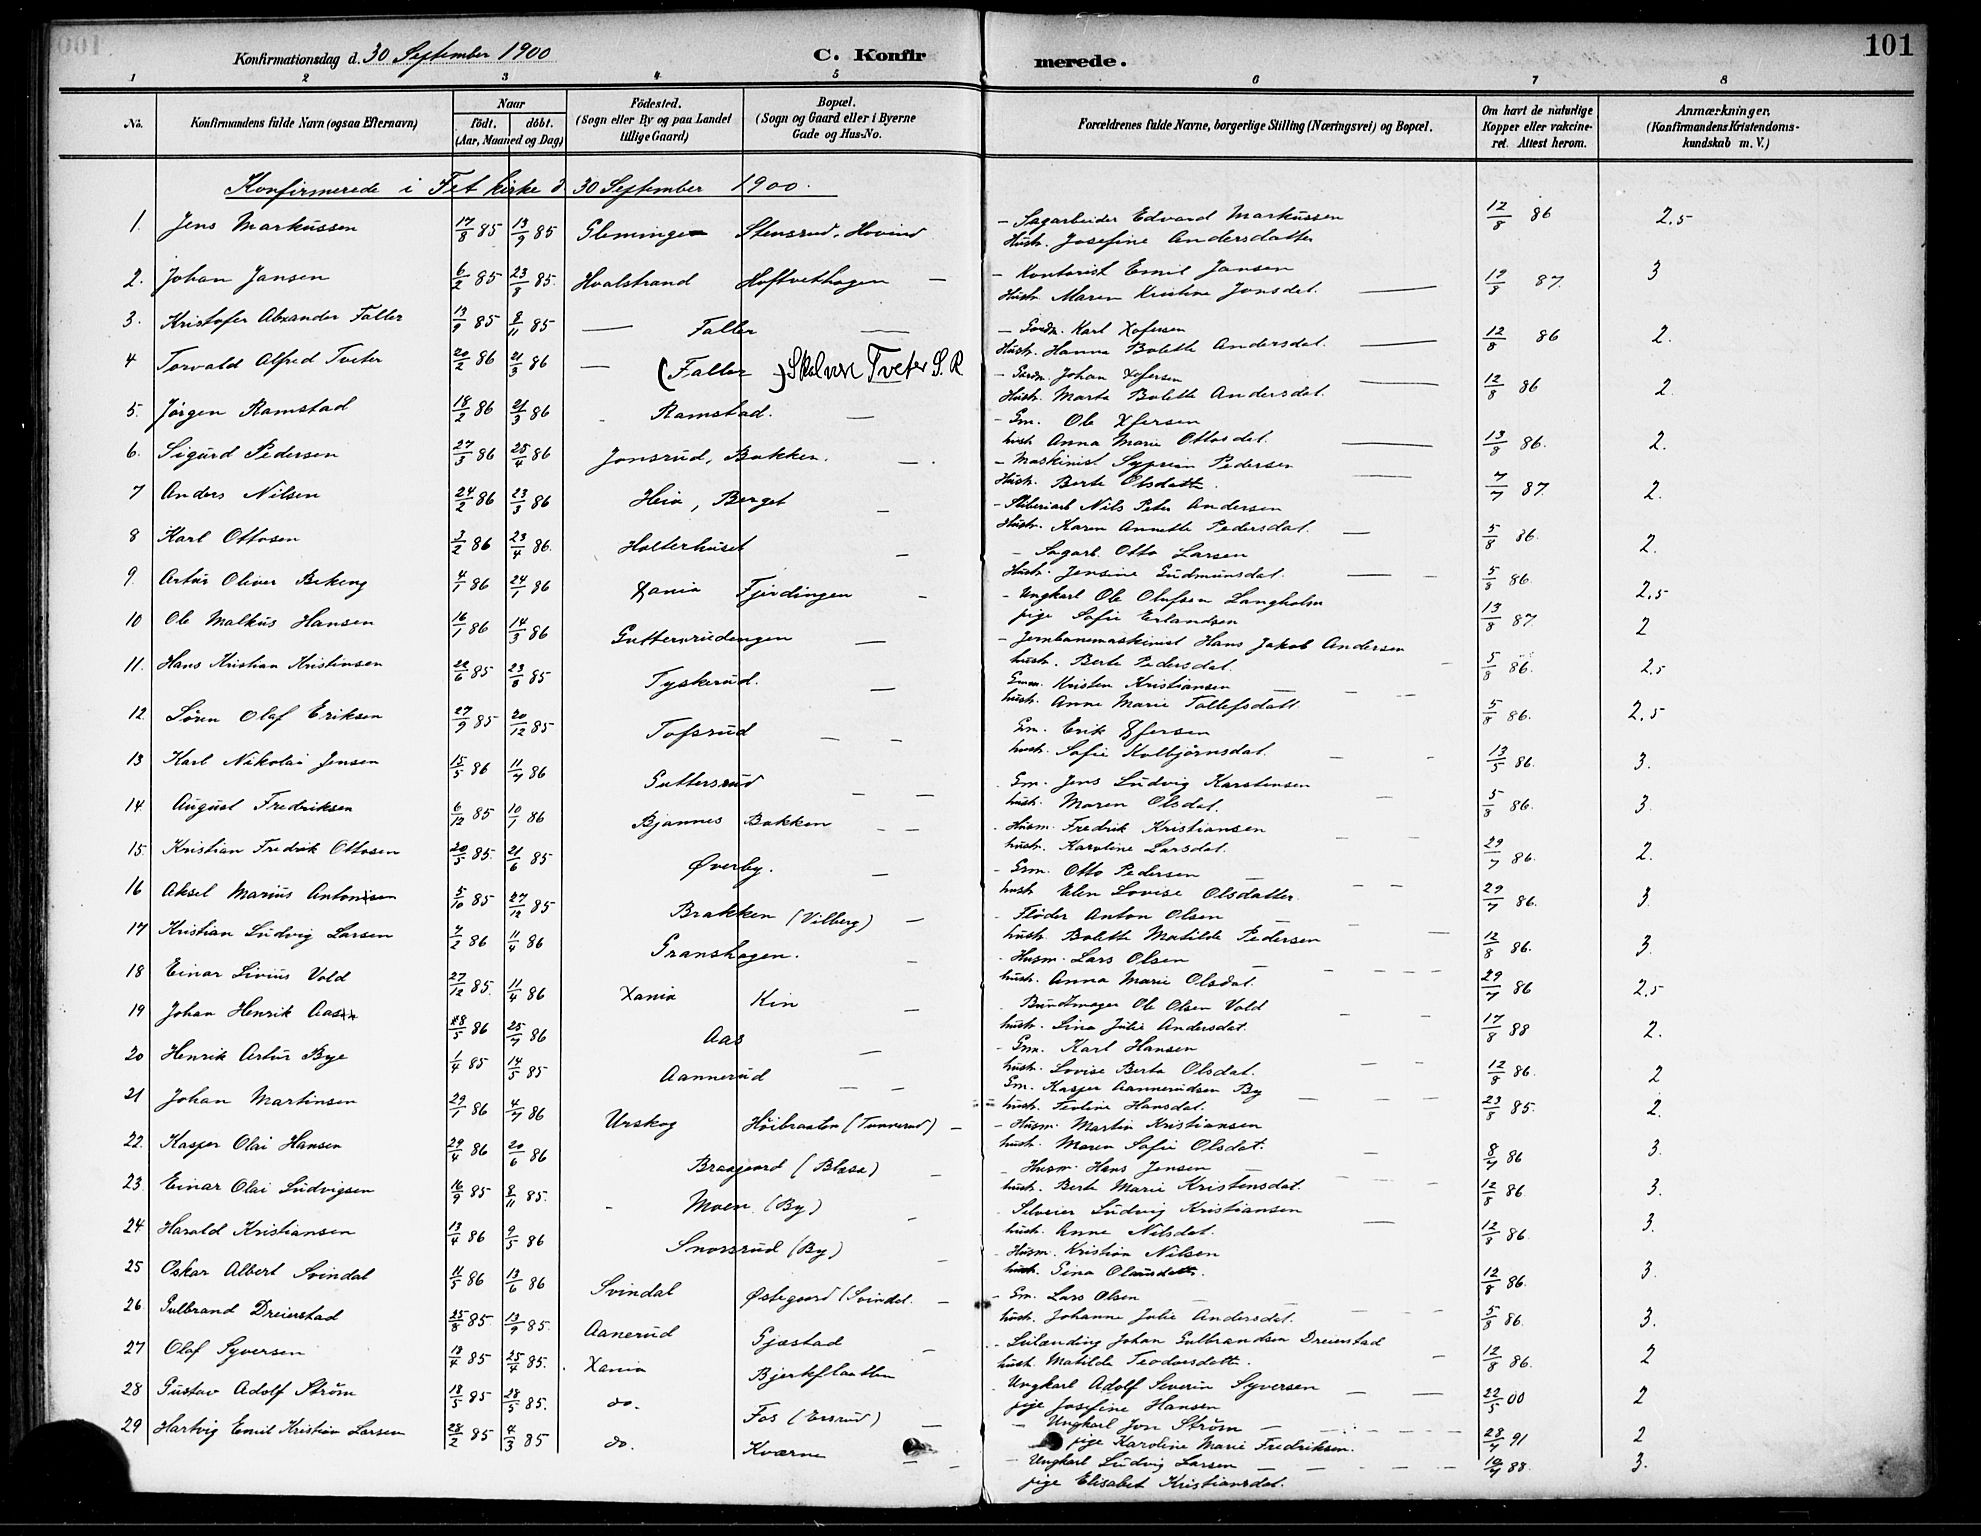 101
Konfirmationsdag d. 30 September 1900 C. Konfirmerede.
1 2 3 4 5 6 7 8
No. Konfirmandens fulde Navn (ogsaa Efternavn) Naar født, døbt. (Aar, Maaned og Dag) Födested. (Sogn eller By og paa Landet tillige Gaard) Bopæl. (Sogn og Gaard eller i Byerne Gade og Hus-No. Forældrenes fulde Navne, borgerlige Stilling (Næringsvei) og Bopæl. Om havt de naturlige Kopper eller vakcineret. Attest herom. Anmærkninger, (Konfirmandens Kristendomskundskab m. V.)
Konfirmerede i Fet kirke d 30 September 1900.
1. Jens Markussen 17/8 85 13/9 85 Glemminge Stensrud, Hovind – Sagarbeider Edvard Markussen Hustr. Josefine Andersdatter 12/8 86 2,5
2. Johan Jansen 6/2 85 23/8 85. Hvalstrand Hoftvethagen – – Kontorist Emil Jansen Hustr. Maren Kristine Jonsdat. 12/8 87. 3
3. Kristofer Alexander Faller 13/9 85 8/11 85 — Faller — – Gaardm. Karl Xofersen Hustr. Hanna Bolette Andersdat. 12/8 86 2.
4 Torvald Alfred Tveter 20/2 86 21/3 86 — (Faller) Skal være Tveter S. R – Gaardm. Johan Xofersen Hustr. Marte Bolette Andersdat. 12/8 86 2.
5. Jørgen Ramstad 18/2 86 21/3 86 Ramstad. — – Gm. Ole Xfersen hustr Anna Marie Ottosdat. 13/8 86. 2.
6. Sigurd Pedersen 27/3 86 25/4 86 Jonsrud, Bakken. – Maskinist Syprian Pedersen Hustr. Berte Olsdatt. 7/7 87. 2.
7 Anders Nilsen 24/2 86 23/3 86 Heia, Berget – Nils Peter Andersen Hustr. Karen Annette Pedersdat. 5/8 86. 2.
8 Karl Ottosen 3/2 86 23/4 86. Holterhuset – Sagarb. Otto Larsen Hustr. Jensine Gudmunsdat. 5/8 86. 2,5
9. Artur Oliver Bekeng 4/1 86 24/1 86 Xania Fjerdingen – Ungkarl Ole Olufsen Langholm pige Sofie Erlandsen 13/8 87. 2
10 Ole Malkus Hansen 16/1 86 14/3 86 Guttersrudengen – Jernbanemaskinist Hans Jakob Andersen hustr. Berte Pedersdat. 5/8 86. 2,5
11. Hans Kristian Kristinsen 22/6 85 23/8 85 Tyskerud. – Gmm. Kristen Kristiansen hustr. Anne Marie Tollefsdatt. 5/8 86. 2,5
12. Søren Olaf Eriksen 27/9 85 20/12 85 Tofsrud – – Gm. Erik Xfersen hustr. Sofie Kolbjørnsdat. 13/5 86. 3.
13 Karl Nikolai Jensen 15/5 86 11/7 86 Guttersrud – – Gm. Jens Ludvig Karstensen hustr. Maren Olsdat. 5/8 86. 3.
14. August Fredriksen 6/12 85 10/1 86 Bjannes Bakken – – Husm. Fredrik Kristiansen hustr. Karoline Larsdat. 29/7 86. 2.
15. Kristian Fredrik Ottosen 20/5 85. 21/6 85 Øverby. – Gm. Otto Pedersen hustr Elen Lovise Olsdatter. 29/7 86. 3.
16 Aksel Marius Antonsen 5/10 85 27/12 85 Brakken (Vilberg) – Fløder Anton Olsen hustr. Bolette Matilde Pedersen 12/8 86. 3.
17 Kristian Ludvig Larsen 7/2 86 11/4 86 Granshagen. – Husm. Lars Olsen hustr. Anna Marie Olsdat. 29/7 86 2,5
18 Einar Livius Vold 27/12 85. 11/4 86 Xania Kin – Buntmager Ole Olsen Vold hustr. Lina Julie Andersdat. 17/8 88 2.
19 Johan Henrik Aas 28/5 86 25/7 86 Aas – Gm. Karl Hansen hustr. Lovise Berta Olsdat. 12/8 86. 2
20 Henrik Artur Bye 1/4 85 14/5 85 Aannerud – – Gm. Kasper Aannerudsen By hustr. Teoline Hansdat. 23/8 85. 2.
21 Johan Martinsen 29/1 86 4/7 86 Urskog Höibraaten (Tunnerud) – – Husm. Martin Kristiansen hustr. Maren Sofie Olsdat. 8/7 86 3.
22. Kasper Olai Hansen 29/4 86 20/6 86 Braagaard (Blasa) – Husm. Hans Jensen hustr. Berte Marie Kristensdat. 12/8 86. 3.
23. Einar Olai Ludvigsen 16/9 85 8/11 85. Moen (By) Ludvig Kristiansen hustr. Anne Nilsdat. 12/8 86. 3.
24 Harald Kristiansen 13/4 86 9/5 86 Snorsrud (By) Husm. Kristian Nilsen hustr. Gina 12/8 86. 3.
25 Oskar Albert Svindal 11/5 86 13/6 86 Svindal Østegaard (Svindal. – – Gm. Lars Olsen hustr. Johanne Julie Andersdat. 5/8 86. 3.
26. Gulbrand Dreierstad 25/8 85. 13/9 85. Aanerud Gjæstad – Johan Gulbrandsen Dreierstad hustr. Matilde Teodorsdatt. 12/8 86. 2
27 Olaf Syversen 13/4 85 25/4 85. Xania Bjerkflaatten Ungkarl Adolf Severin Syversen pige Josefine Hansen 22/5 00 2
28 Gustav Adolf Strøm 18/5 85 28/5 85. do. Fos (Ersrud) – – Ungkarl Jon Strøm pige Karoline Marie Fredriksen. 28/7 91 2
29 Hartvig Emil Kristian Larsen 25/2 85 4/3 85 do. Kværne – – Ungkarl Ludvig Larsen pige Elisabet Kristiansdat. 10/7 88. 3.